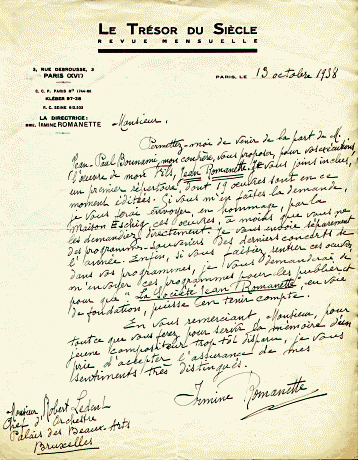 LE TRÉSOR DU SIÈCLE
REVUE MENSUELLE
3, RUE DEBROUSSE, 3
PARIS (XVIe)
C. C. P. PARIS N° 1744-80
KLÉBER 97-38
R. C. SEINE
LA DIRECTRICE:
IRMINE ROMANETTE
PARIS, LE 13 octobre 1938
Monsieur,
Permettez-moi de venir de la part de M.
Jean-Paul Bonnami, mon confrère, vous proposer, pour vos exécutions
l'œuvre de mon fils, Jean Romanette. Je vous joins inclus,
un premier répertoire, dont 19 œuvres sont en ce
moment éditées. Si vous m'en faites la demande,
je vous ferai envoyer, en hommage, par la
Maison Eschig, ces œuvres, à moins que vous ne
les demandiez directement. Je vous envoie séparément
des programmes-souvenirs des derniers concerts de
l'année. Enfin, si vous faisiez rentrer ces œuvres
dans vos programmes, je vous demanderai de
m'envoyer ces programmes pour les publier et
pour que "La Société Jean Romanette", en voie
de fondation, puisse en tenir compte.
En vous remerciant, Monsieur, pour
tout ce que vous ferez pour servir la mémoire d'un
jeune compositeur trop tôt disparu, je vous
prie d'accepter l'assurance de mes
sentiments très distingués.
Irmine Romanette
Monsieur Robert Ledent
Chef d'Orchestre
Palais des Beaux-Arts
Bruxelles